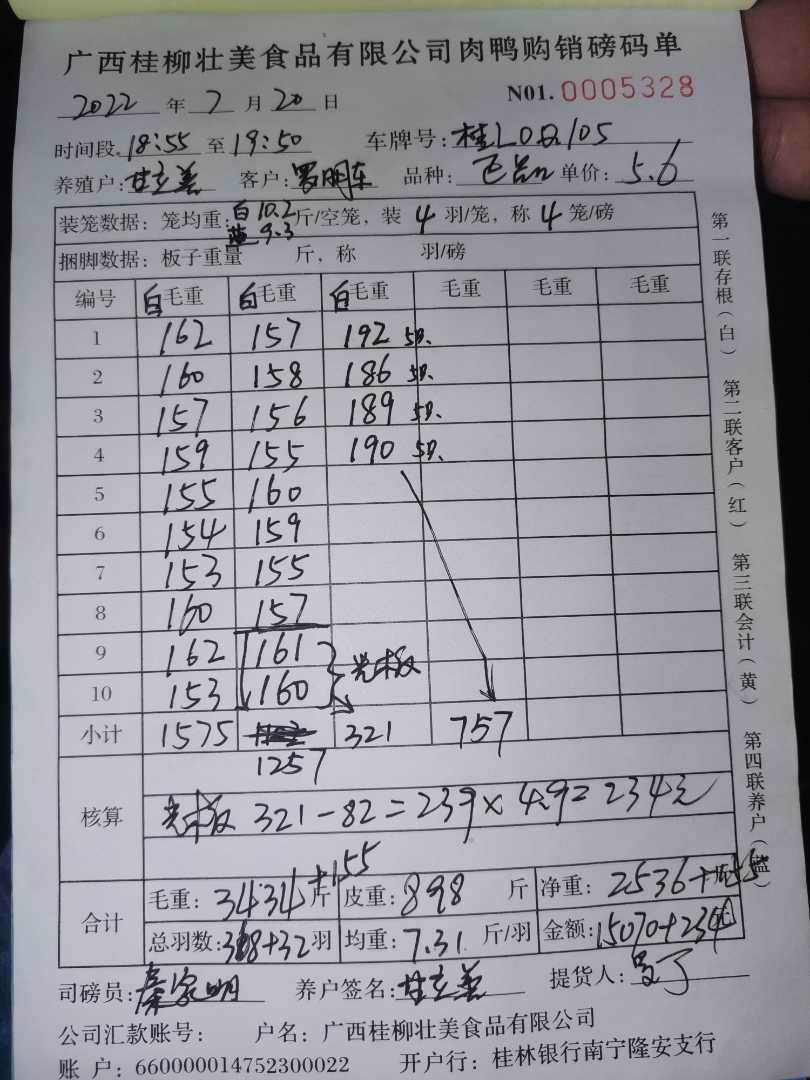 广西桂柳壮美食品有限公司肉鸭购销磅码单
2022 年 7 月 20 日 N01. 0005328
时间段 18:55 至 19:50 车牌号: 桂L0 105
养殖户: 甘立善 客户: 罗明车 品种: 单价: 5.6
装笼数据: 笼均重: 白10.2 蓝9.3 斤/空笼, 装 4 羽/笼, 称 4 笼/磅
捆脚数据: 板子重量 斤, 称 羽/磅
编号 白毛重 白毛重 白毛重 毛重 毛重 毛重
1 162 157 192 5只.
2 160 158 186 5只.
3 157 156 189 5只.
4 159 155 190 5只.
5 155 160
6 154 159
7 153 155
8 160 157
9 162 161 光板
10 153 160
小计 1575 321 757
1257
核算
光板 321-82=239×4.9=234元
合计 毛重: 3434+155 斤 皮重: 898 斤 净重: 2536+155
总羽数: 368+32 羽 均重: 7.31 斤/羽 金额: 15070+234元
司磅员: 秦家明 养户签名: 甘立善 提货人:
公司汇款账号: 户名: 广西桂柳壮美食品有限公司
账 户: 660000014752300022 开户行: 桂林银行南宁隆安支行
第一联存根(白) 第二联客户(红) 第三联会计(黄) 第四联养户(蓝)